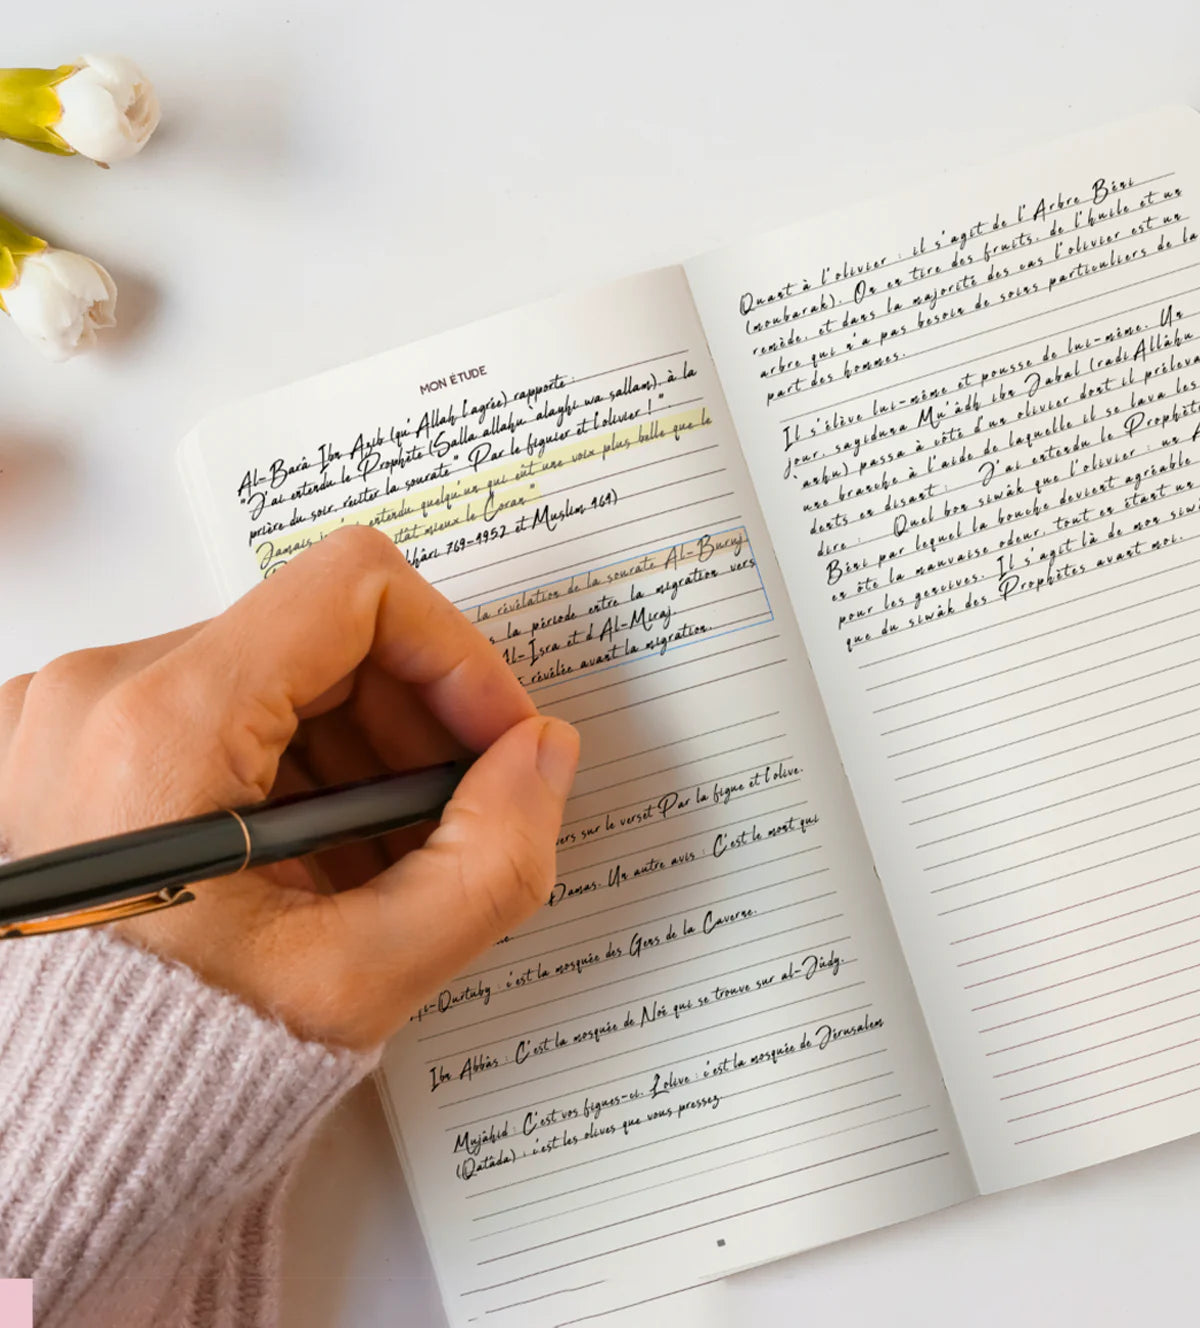 MON ÉTUDE
Al-Barâ Ibn Azib (qu'Allah l'agrée) rapporte :
"J'ai entendu le Prophète (Salla allahu 'alayhi wa sallam), à la
prière du soir, réciter la sourate" Par le figuier et l'olivier !".
Jamais entendu quelqu'un qui eût une voix plus belle que le
mieux le Coran"
khâri 769-4952 et Muslim 464)
la révélation de la sourate Al-Buruj.
la période entre la migration vers
Al-Isra et d'Al-Miraj.
révélée avant la migration.
vers sur le verset Par la figue et l'olive.
Damas. Un autre avis : C'est le mont qui
Qurtuby : c'est la mosquée des Gens de la Caverne.
Ibn Abbâs : C'est la mosquée de Noé qui se trouve sur al-Jûdy.
Mujâhid : C'est vos figues-ci. L'olive : c'est la mosquée de Jérusalem
(Qatâda) : c'est les olives que vous pressez.
Quant à l'olivier : il s'agit de l'Arbre Béni
(moubarak). On en tire des fruits, de l'huile et un
remède, et dans la majorité des cas l'olivier est un
arbre qui n'a pas besoin de soins particuliers de la
part des hommes.
Il s'élève lui-même et pousse de lui-même. Un
jour, sayiduna Mu'âdh ibn Jabal (radi Allâhu
'anhu) passa à côté d'un olivier dont il préleva
une branche à l'aide de laquelle il se lava les
dents en disant : J'ai entendu le Prophète
dire : Quel bon siwâk que l'olivier : un
Béni par lequel la bouche devient agréable
en ôte la mauvaise odeur, tout en étant un
pour les gencives. Il s'agit là de mon siwâ
que du siwâk des Prophètes avant moi.